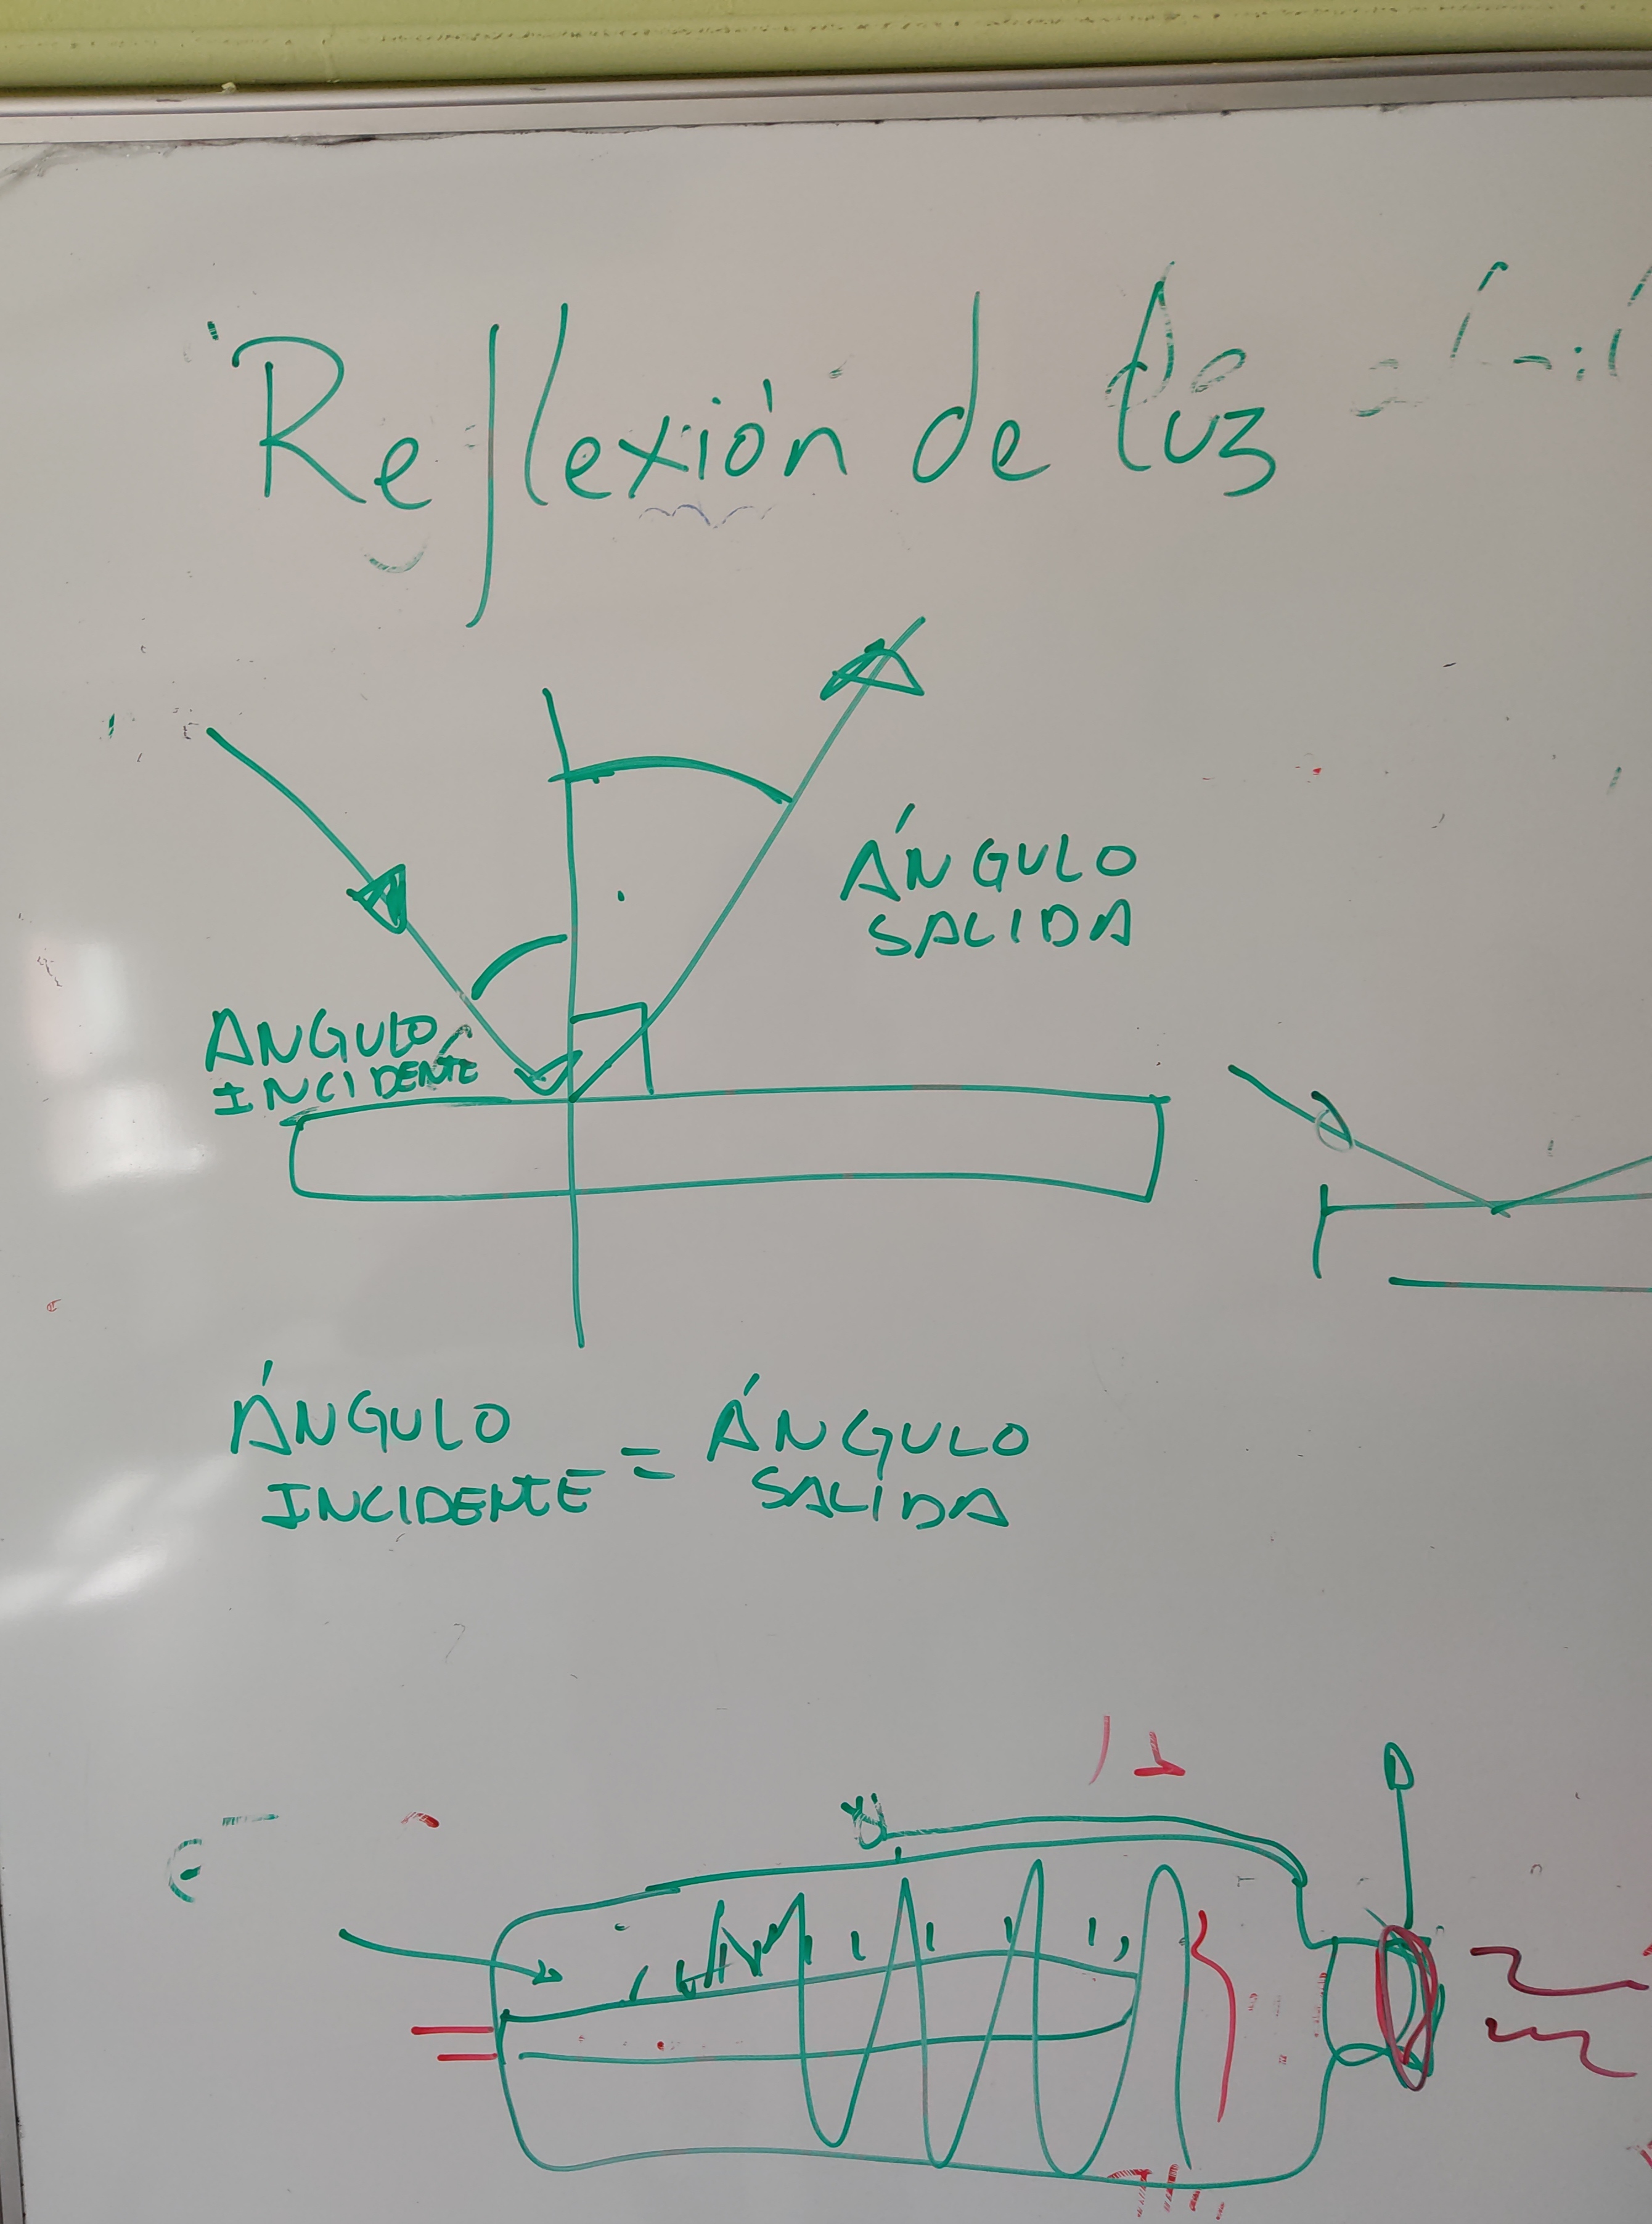 Reflexión de luz
ÁNGULO
SALIDA
ANGULO
INCIDENTE
ÁNGULO
INCIDENTE = ÁNGULO
SALIDA